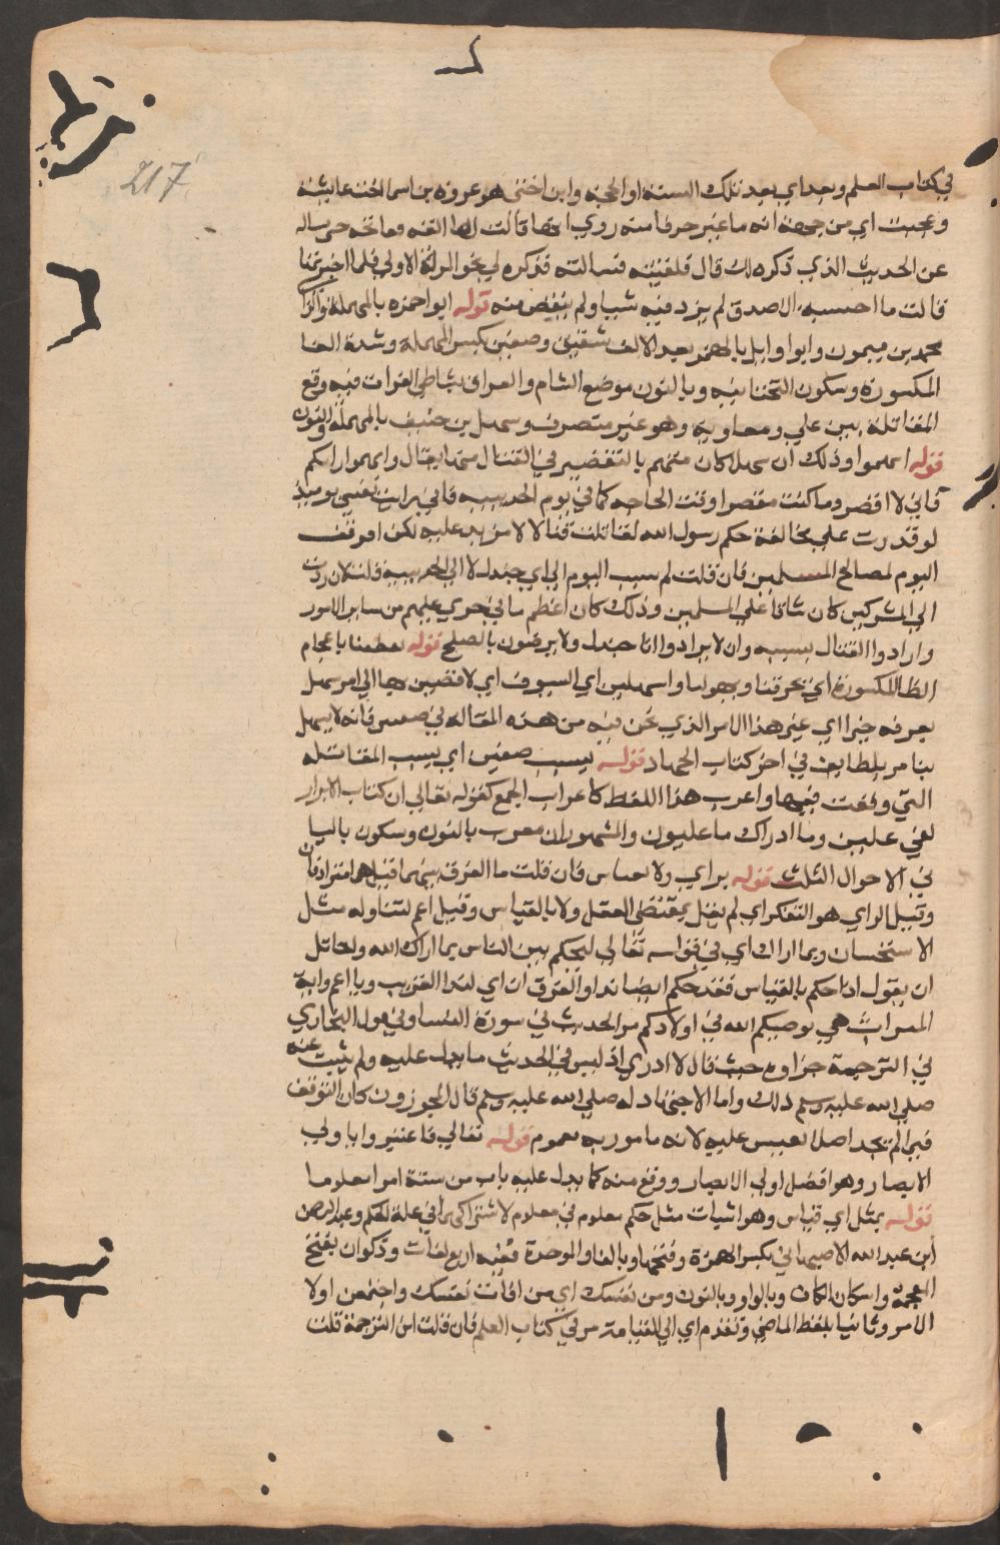 217
في كتاب العلم وبعد اي بعد تلك السنة او الحجة وابن اختي هو عروة بن اسما اخت عايشة
وعجبت اي من جهة انه ما غير حرفا منه روي انها قالت له القه ففاتحه حتي تساله
عن الحديث الذي ذكره لك قال فلقيته فسالته فذكره لي نحو المرة الاولي فلما اخبرتها
قالت ما احسبه الا صدق لم يزد فيه شيا ولم ينقص منه قوله ابو احمزه بالمهملة والزا
محمد بن ميمون وابو اوايل بالهمز بعد الالف شقيق وصفين بكسر المهملة وشدة الفا
المكسورة وسكون التحتانيه وبالنون موضع الشام والعراق بشاطي الفرات فيه وقع
المقاتلة بين علي ومعاوية وهو غير متصرف وسهل بن حنيف بالمهملة والنون
قوله اتهموا وذلك ان سهلا كان متهم بالتقصير في القتال فقال اتهموا رايكم
فاني لا اقصر وما كنت مقصرا وقت الحاجه كما في يوم الحديبيه فاني رايت نفسي يوميذ
لو قدرت علي مخالفة حكم رسول الله لقاتلت قتالا لا مزيد عليه لكن اتوقف
اليوم لمصالح المسلمين فان قلت لم نسب اليوم الي ابي جندل لا الي الحديبيه قلت لان رده
الي المشركين كان شاقا علي المسلمين وذلك كان اعظم ما في جري عليهم من ساير الامور
وارادوا القتال بسببه وان لا يردوا ابا جندل ولا يرضون بالصلح قوله يفظعنا باعجام
الظا المكسورة اي يخوفنا ويهولنا واسهلن اي السيوف اي لا افضين بنا الي امر سهل
نعرفه خيرا اي غير هذا الامر الذي نحن فيه من هذه المقاتلة في صفين فانه لا يسهل
بنا مر بلطايف في اخر كتاب الجهاد قوله بيست صفين اي بيست المقاتله
التي وقعت فيها واعرب هذا اللفظ كاعراب الجمع كقوله تعالي ان كتاب الابرار
لفي عليين وما ادراك ما عليون والمشهور ان معرب بالنون وسكون باليا
في الاحوال الثلث قوله براي ولا بقياس فان قلت ما الفرق بينهما قيل هما مترادفان
وقيل الراي هو التفكر اي لم يقل بمقتضي العقل ولا بالقياس وقيل اعم لتناوله مثل
الاستحسان وبما اراك اي في قوله تعالي لتحكم بين الناس بما اراك الله ولقايل
ان يقول اذا حكم بالقياس فقد حكم ايضا بما اراه
الميراث هي يوصيكم الله في اولادكم مر الحديث في سورة النسا وفي قول البخاري
في الترجمة حزازه حيث قال لا ادري اذ ليس في الحديث ما يدل عليه ولم يثبت عنه
صلي الله عليه وسلم ذلك واما الاجتهاد له صلي الله عليه وسلم قال المجوزون كان التوقف
فيما لم يجد اصلا يقيس عليه لانه مامور به بعموم قوله تعالي فاعتبروا يا اولي
الابصار وهو افضل اولي الابصار ووقع منه كما يدل عليه باب من شبه امرا معلوما
قوله بمثل اي قياس وهو اثبات مثل حكم معلوم في معلوم لاشتراكهما في علة الحكم وعبد الرحمن
ابن عبد الله الاصبهاني بكسر الهمزة وفتحها وبالفا والموحدة ففيه اربع لغات وذكوان بفتح
المعجمة واسكان الكاف وبالواو وبالنون ومن نفسك اي من اوقات نفسك واجتمعن اولا
الامر وثانيا بلفظ الماضي وتقدم اي الي القيامة مر في كتاب العلم فان قلت اين الترجمة قلت